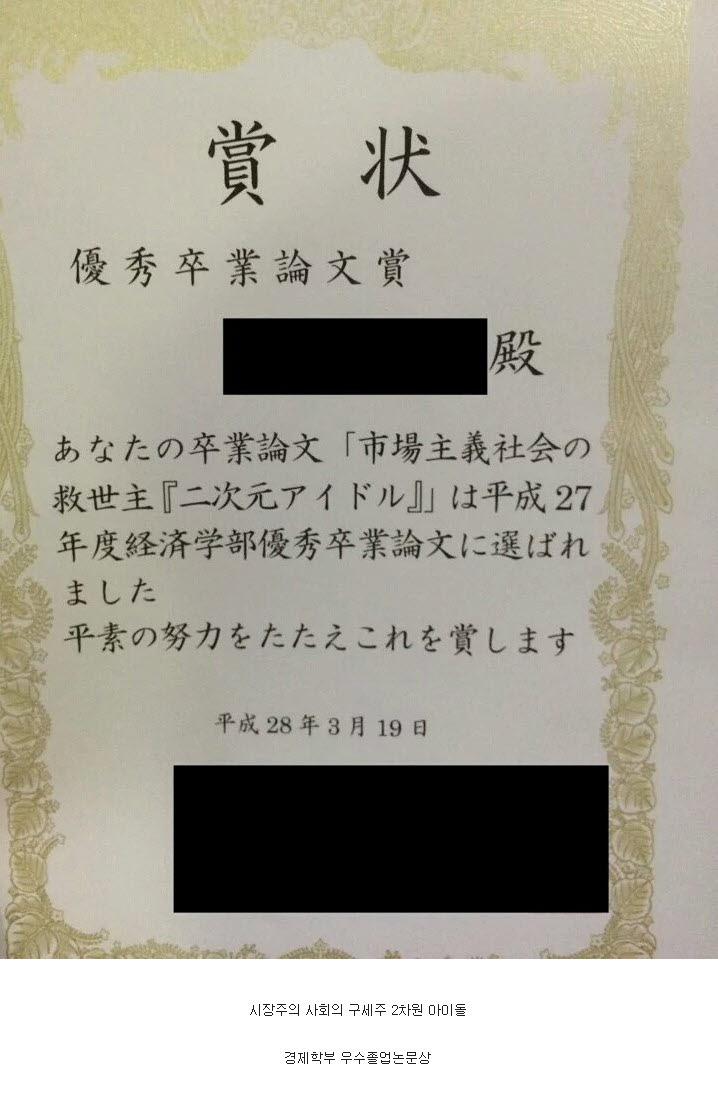 賞 状
優秀卒業論文賞
殿
あなたの卒業論文「市場主義社会の
救世主『二次元アイドル』」は平成27
年度経済学部優秀卒業論文に選ばれ
ました
平素の努力をたたえこれを賞します
平成28年3月19日
시장주의 사회의 구세주 2차원 아이돌
경제학부 우수졸업논문상